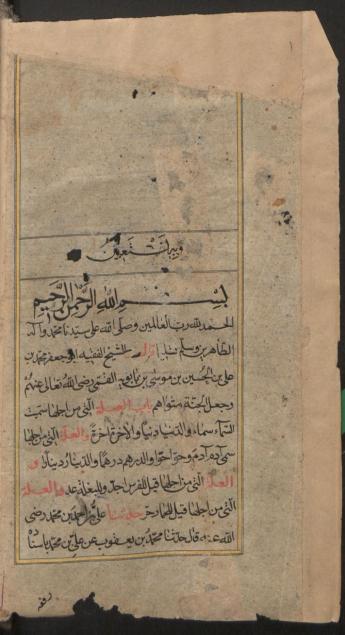 وبه نستعين
بسم الله الرحمن الرحيم
الحمد لله رب العالمين وصلى الله على سيدنا محمد وآله
الطاهرين وسلم تسليما قال الشيخ الفقيه ابو جعفر محمد بن
علي بن الحسين بن موسى بن بابويه القمي رضي الله تعالى عنهم
وجعل الجنة مثواهم باب العلة التي من اجلها سميت
السماء سماء والدنيا دنيا والآخرة آخرة والعلة التي من اجلها
سمي آدم آدم وحوا حوا والدرهم درهما والدينار دينارا و
العلة التي من اجلها قيل للفرس اجد وللبغلة عد والعلة
التي من اجلها قيل للحمار حر حدثنا علي بن احمد بن محمد رضي
الله عنه قال حدثنا محمد بن يعقوب عن علي بن محمد باسناده
رفعه